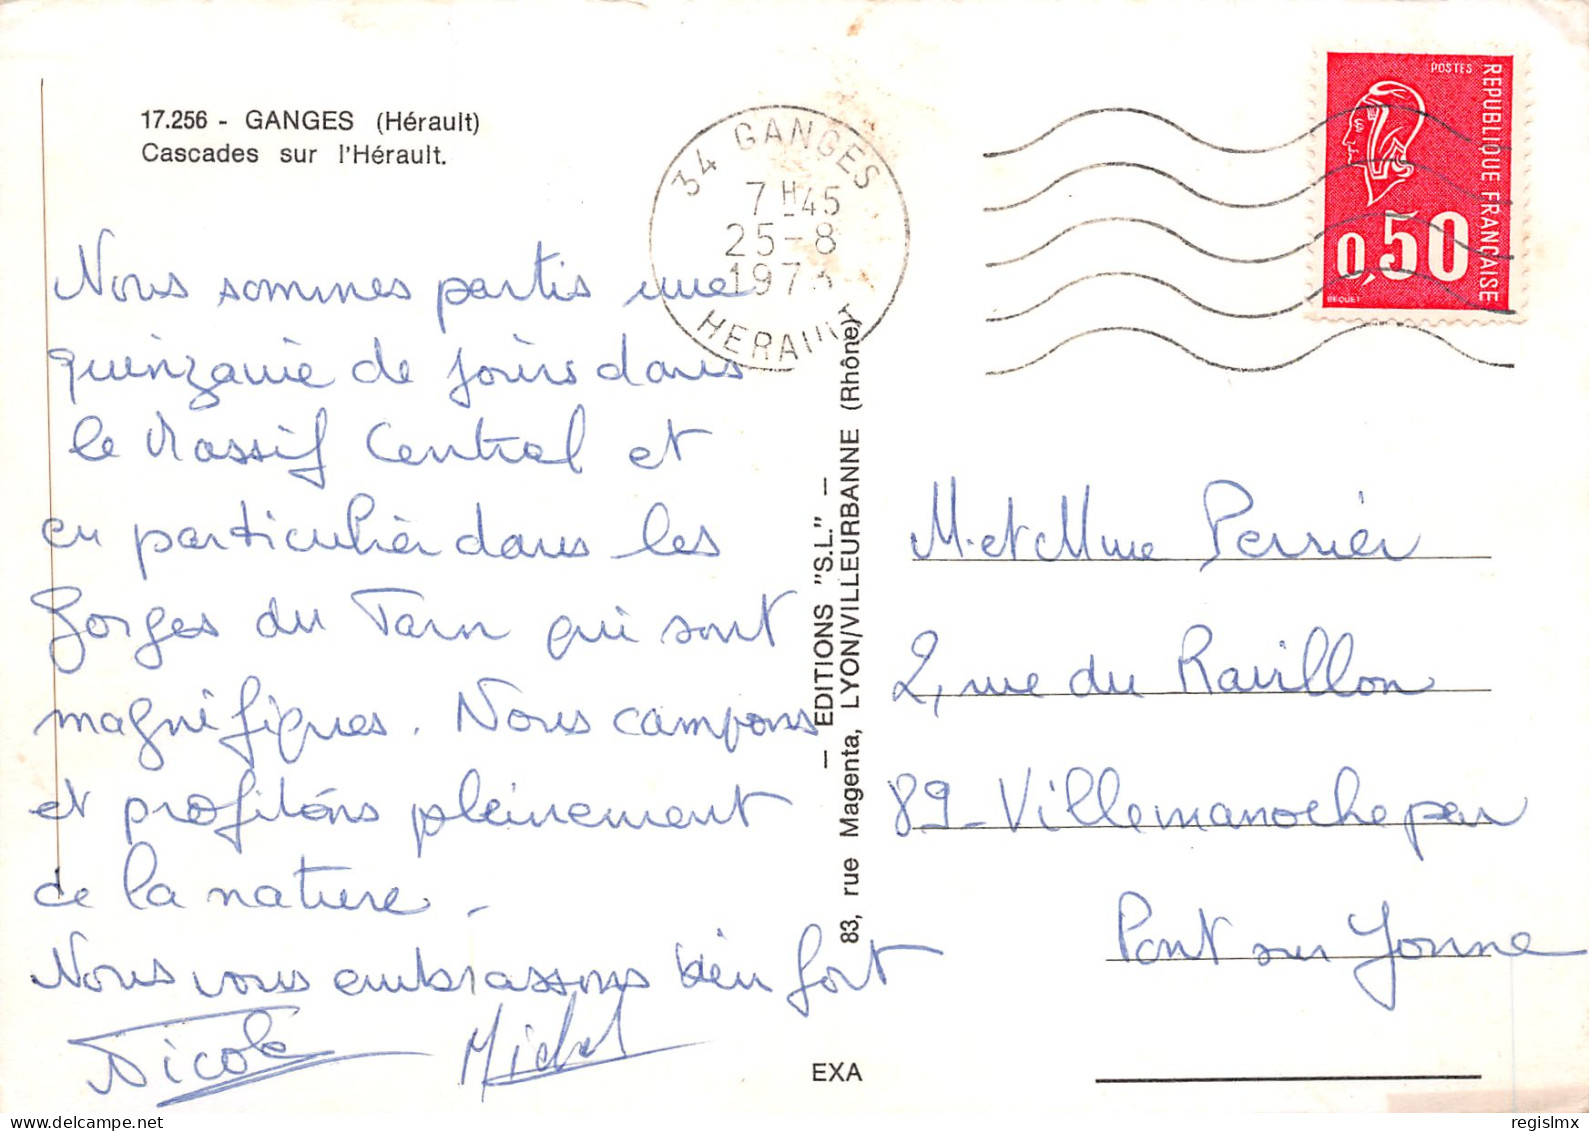 17.256 - GANGES (Hérault)
Cascades sur l'Hérault.
34 GANGES
7H45
25-8
1973
HERAULT
POSTES
REPUBLIQUE FRANÇAISE
0,50
BEQUET
Nous sommes partis une
quinzaine de jours dans
le Massif Central et
en particulier dans les
Gorges du Tarn qui sont
magnifiques. Nous campons
et profitons pleinement
de la nature. -
Nous vous embrassons bien fort
Nicole Michel
— EDITIONS "S.L." —
83, rue Magenta, LYON/VILLEURBANNE (Rhône)
M. et Mme Perrier
2, rue du Ravillon
89 - Villemanoche par
Pont sur Yonne
EXA
regislmx